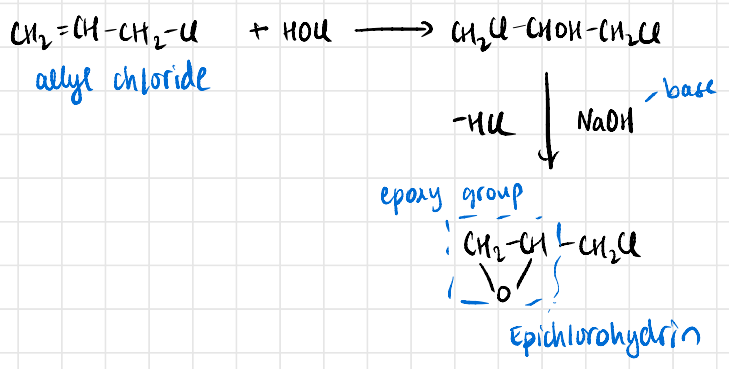 CH₂=CH-CH₂-Cl + HOCl ⟶ CH₂Cl-CHOH-CH₂Cl
allyl chloride
base
-HCl NaOH
epoxy group
CH₂-CH-CH₂Cl
O
Epichlorohydrin